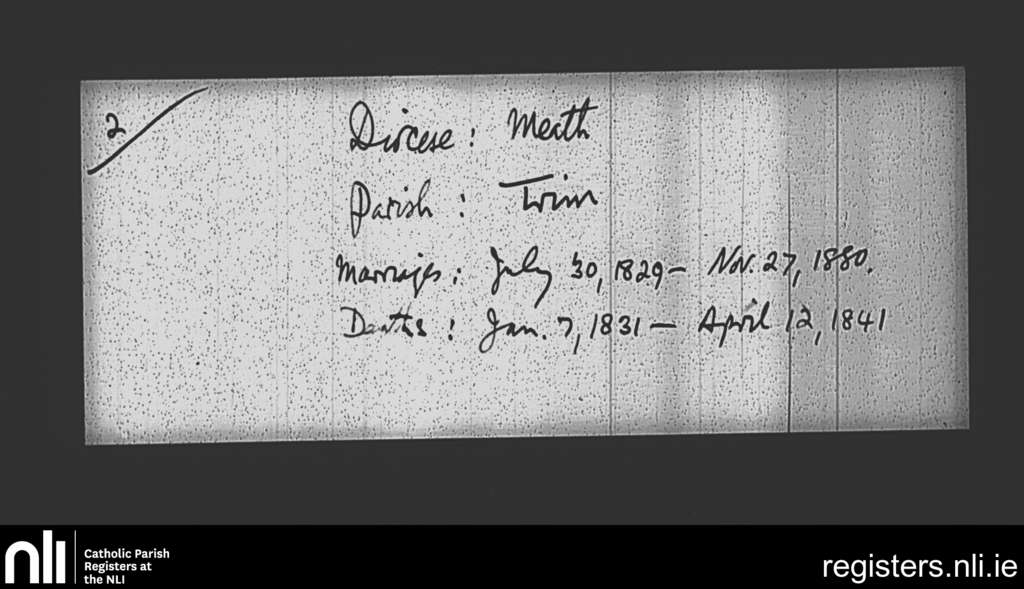 2
Diocese : Meath
Parish : Trim
Marriages : July 30, 1829 – Nov. 27, 1880.
Deaths : Jan. 7, 1831 – April 12, 1841
nli
Catholic Parish
Registers at
the NLI
registers.nli.ie